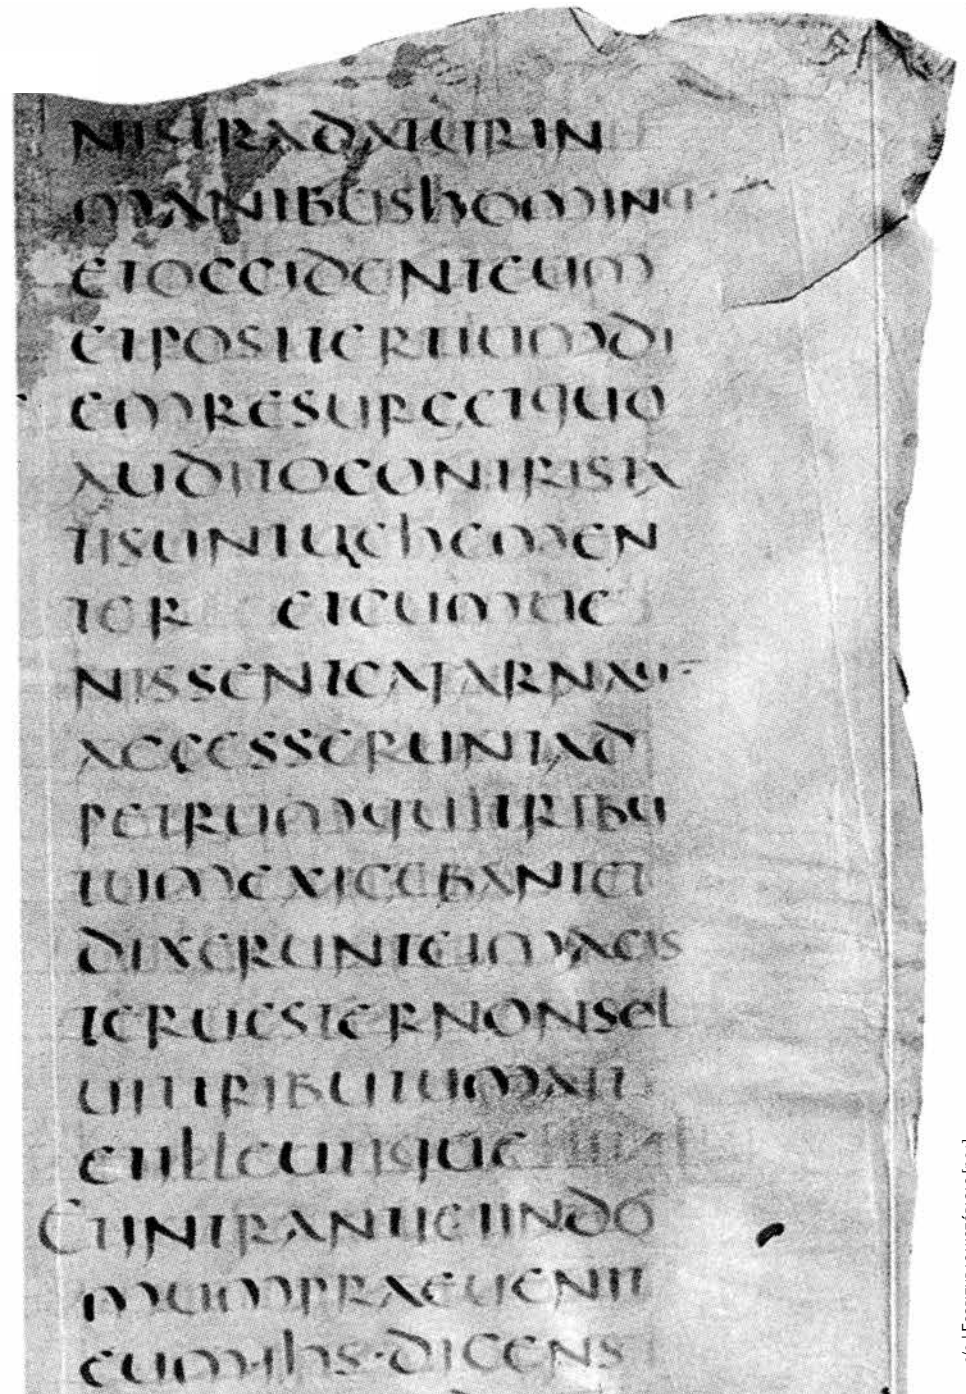 NISTRADATURIN
MANIBUSHOMINU-
ETOCCIDENTEUM
ETPOSTTERTIUMDI
EMRESURGETQUO
AUDITOCONTRISTA
TISUNTUEHEMEN
TER ETCUMUE
NISSENTCAFARNAU-
ACCESSERUNTAD
PETRUMQUITRIBU
TUMEXIGEBANTET
DIXERUNTEIMAGIS
TERUESTERNONSOL
UITTRIBUTUMAIT
EIILLEUTIQUE
ETINTRANTIEIINDO
MUMPRAEUENIT
EUM·IHS·DICENS